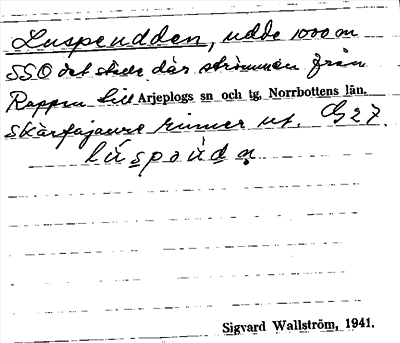 Luspeudden, udde 1000 m
SSO det ställe där strömmen från
Rappen till Arjeplogs sn och tg, Norrbottens län.
Skärfajaure rinner ut. G27.
lúspəùdn
Sigvard Wallström, 1941.